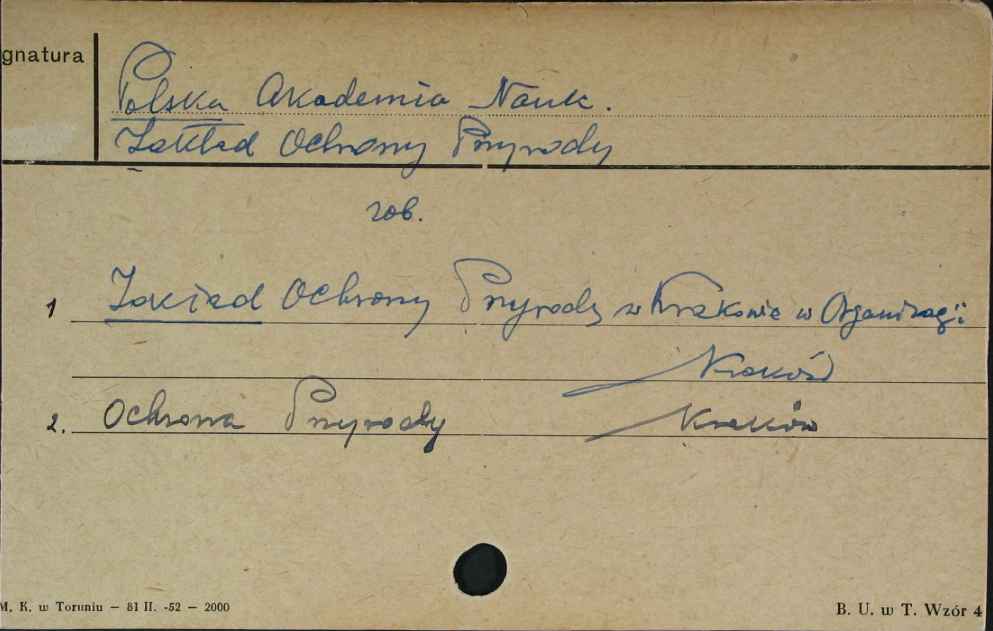 gnatura
Polska Akademia Nauk.
Zakład Ochrony Przyrody
zob.
1 Zakład Ochrony Przyrody w Krakowie w Organizacji
Kraków
2. Ochrona Przyrody Kraków
M. K. w Toruniu — 81 II. -52 — 2000
B. U. w T. Wzór 4